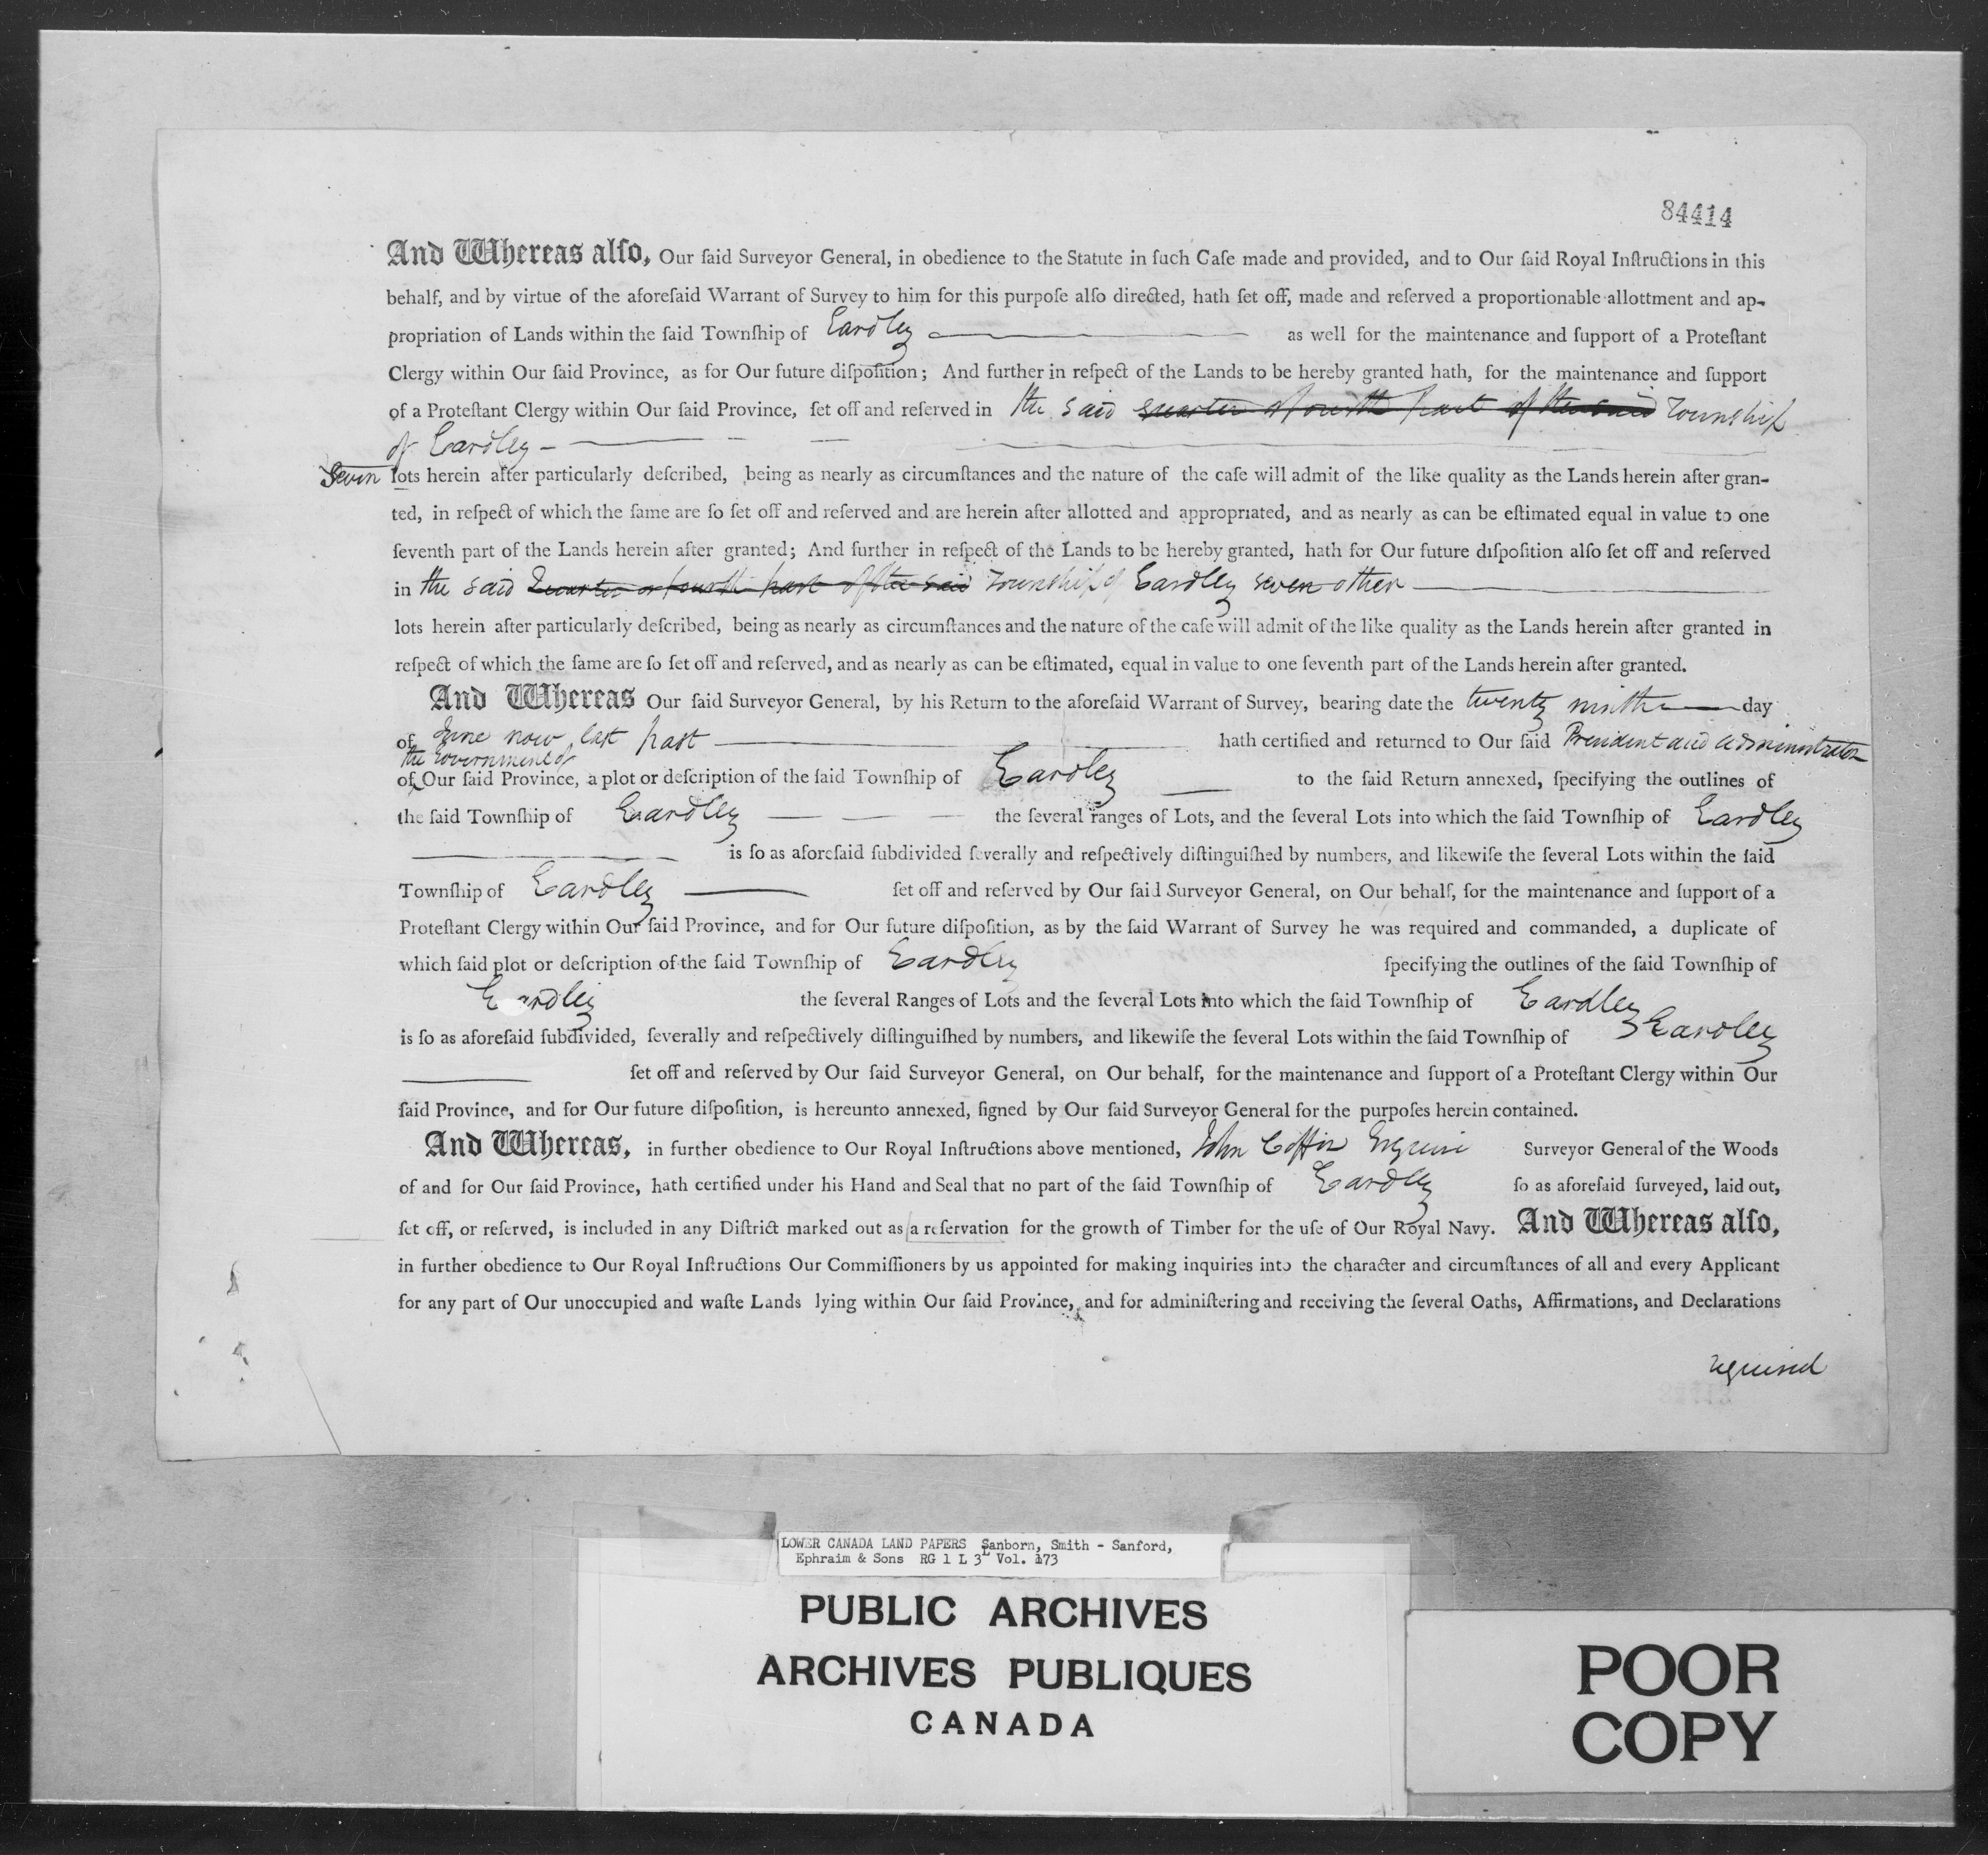 84414
And Whereas alſo, Our ſaid Surveyor General, in obedience to the Statute in ſuch Caſe made and provided, and to Our ſaid Royal Inſtructions in this
behalf, and by virtue of the aforeſaid Warrant of Survey to him for this purpoſe alſo directed, hath ſet off, made and reſerved a proportionable allottment and ap-
propriation of Lands within the ſaid Townſhip of Eardley as well for the maintenance and ſupport of a Proteſtant
Clergy within Our ſaid Province, as for Our future diſpoſition; And further in reſpect of the Lands to be hereby granted hath, for the maintenance and ſupport
of a Proteſtant Clergy within Our ſaid Province, ſet off and reſerved in the said quarter or fourth part of the said Township
of Eardley -
Seven lots herein after particularly deſcribed, being as nearly as circumſtances and the nature of the caſe will admit of the like quality as the Lands herein after gran-
ted, in reſpect of which the ſame are ſo ſet off and reſerved and are herein after allotted and appropriated, and as nearly as can be eſtimated equal in value to one
ſeventh part of the Lands herein after granted; And further in reſpect of the Lands to be hereby granted, hath for Our future diſpoſition alſo ſet off and reſerved
in the said Quarter or fourth part of the said Township of Eardley seven other
lots herein after particularly deſcribed, being as nearly as circumſtances and the nature of the caſe will admit of the like quality as the Lands herein after granted in
reſpect of which the ſame are ſo ſet off and reſerved, and as nearly as can be eſtimated, equal in value to one ſeventh part of the Lands herein after granted.
And Whereas Our ſaid Surveyor General, by his Return to the aforeſaid Warrant of Survey, bearing date the twenty ninth day
of June now last past hath certified and returned to Our ſaid President and administrator
the Government of
of Our ſaid Province, a plot or deſcription of the ſaid Townſhip of Eardley to the ſaid Return annexed, ſpecifying the outlines of
the ſaid Townſhip of Eardley the ſeveral ranges of Lots, and the ſeveral Lots into which the ſaid Townſhip of Eardley
is ſo as aforeſaid ſubdivided ſeverally and reſpectively diſtinguiſhed by numbers, and likewiſe the ſeveral Lots within the ſaid
Townſhip of Eardley ſet off and reſerved by Our ſaid Surveyor General, on Our behalf, for the maintenance and ſupport of a
Proteſtant Clergy within Our ſaid Province, and for Our future diſpoſition, as by the ſaid Warrant of Survey he was required and commanded, a duplicate of
which ſaid plot or deſcription of the ſaid Townſhip of Eardley ſpecifying the outlines of the ſaid Townſhip of
Eardley the ſeveral Ranges of Lots and the ſeveral Lots into which the ſaid Townſhip of Eardley
is ſo as aforeſaid ſubdivided, ſeverally and reſpectively diſtinguiſhed by numbers, and likewiſe the ſeveral Lots within the ſaid Townſhip of Eardley
ſet off and reſerved by Our ſaid Surveyor General, on Our behalf, for the maintenance and ſupport of a Proteſtant Clergy within Our
ſaid Province, and for Our future diſpoſition, is hereunto annexed, ſigned by Our ſaid Surveyor General for the purpoſes herein contained.
And Whereas, in further obedience to Our Royal Inſtructions above mentioned, John Coffin Esquire Surveyor General of the Woods
of and for Our ſaid Province, hath certified under his Hand and Seal that no part of the ſaid Townſhip of Eardley ſo as aforeſaid ſurveyed, laid out,
ſet off, or reſerved, is included in any Diſtrict marked out as a reſervation for the growth of Timber for the uſe of Our Royal Navy. And Whereas alſo,
in further obedience to Our Royal Inſtructions Our Commiſſioners by us appointed for making inquiries into the character and circumſtances of all and every Applicant
for any part of Our unoccupied and waſte Lands lying within Our ſaid Province, and for adminiſtering and receiving the ſeveral Oaths, Affirmations, and Declarations
required
LOWER CANADA LAND PAPERS Sanborn, Smith - Sanford,
Ephraim & Sons RG 1 L 3L Vol. 173
PUBLIC ARCHIVES
ARCHIVES PUBLIQUES
CANADA
POOR
COPY